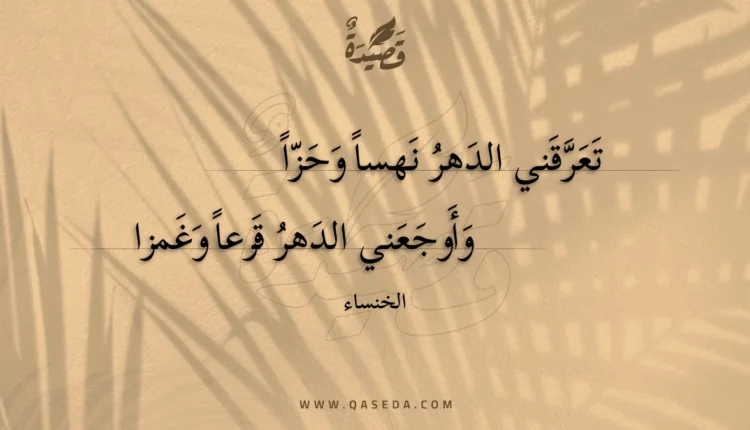 قَصِيْدَةٌ
تَعَرَّقَني الدَهرُ نَهساً وَحَزّاً
وَأَوجَعَني الدَهرُ قَرعاً وَغَمزا
الخنساء
WWW.QASEDA.COM